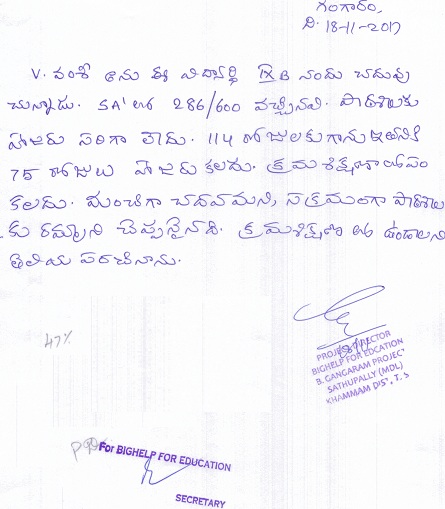 గంగారం,
ది. 18-11-2017
V. వంశీ అను ఈ విద్యార్థి IX B నందు చదువు
చున్నాడు. SA' లో 286/600 వచ్చినవి. పాఠశాలకు
హాజరు సరిగా లేదు. 114 రోజులకుగాను ఇతనికి
75 రోజులు హాజరు కలదు. క్రమశిక్షణా లోపం
కలదు. మంచిగా చదవమని, సక్రమంగా పాఠశాల
కు రమ్మని చెప్పనైనది. క్రమశిక్షణ లో ఉండాలని
తెలియ పరచినాను.
47%
PROJECT DIRECTOR
BIGHELP FOR EDCATION
B. GANGARAM PROJECT
SATHUPALLY (MDL)
KHAMMAM DIST, T.S
For BIGHELP FOR EDUCATION
SECRETARY